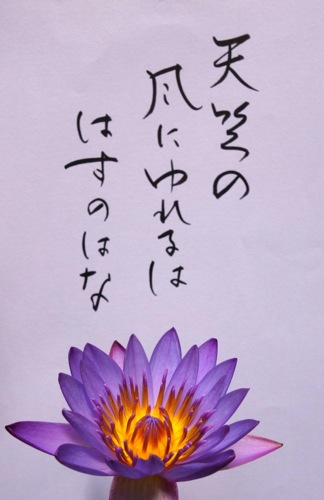 天竺の
風にゆれるは
はすのはな